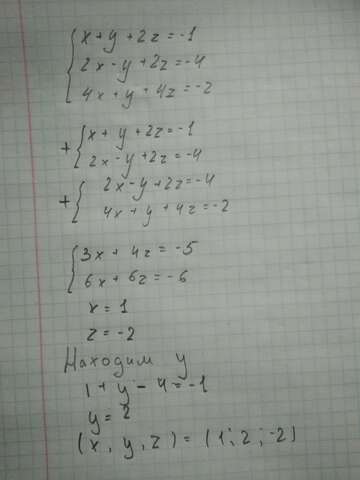 x + y + 2z = -1
2x - y + 2z = -4
4x + y + 4z = -2
+ x + y + 2z = -1
2x - y + 2z = -4
+ 2x - y + 2z = -4
4x + y + 4z = -2
3x + 4z = -5
6x + 6z = -6
x = 1
z = -2
Находим y
1 + y - 4 = -1
y = 2
(x, y, z) = (1; 2; -2)